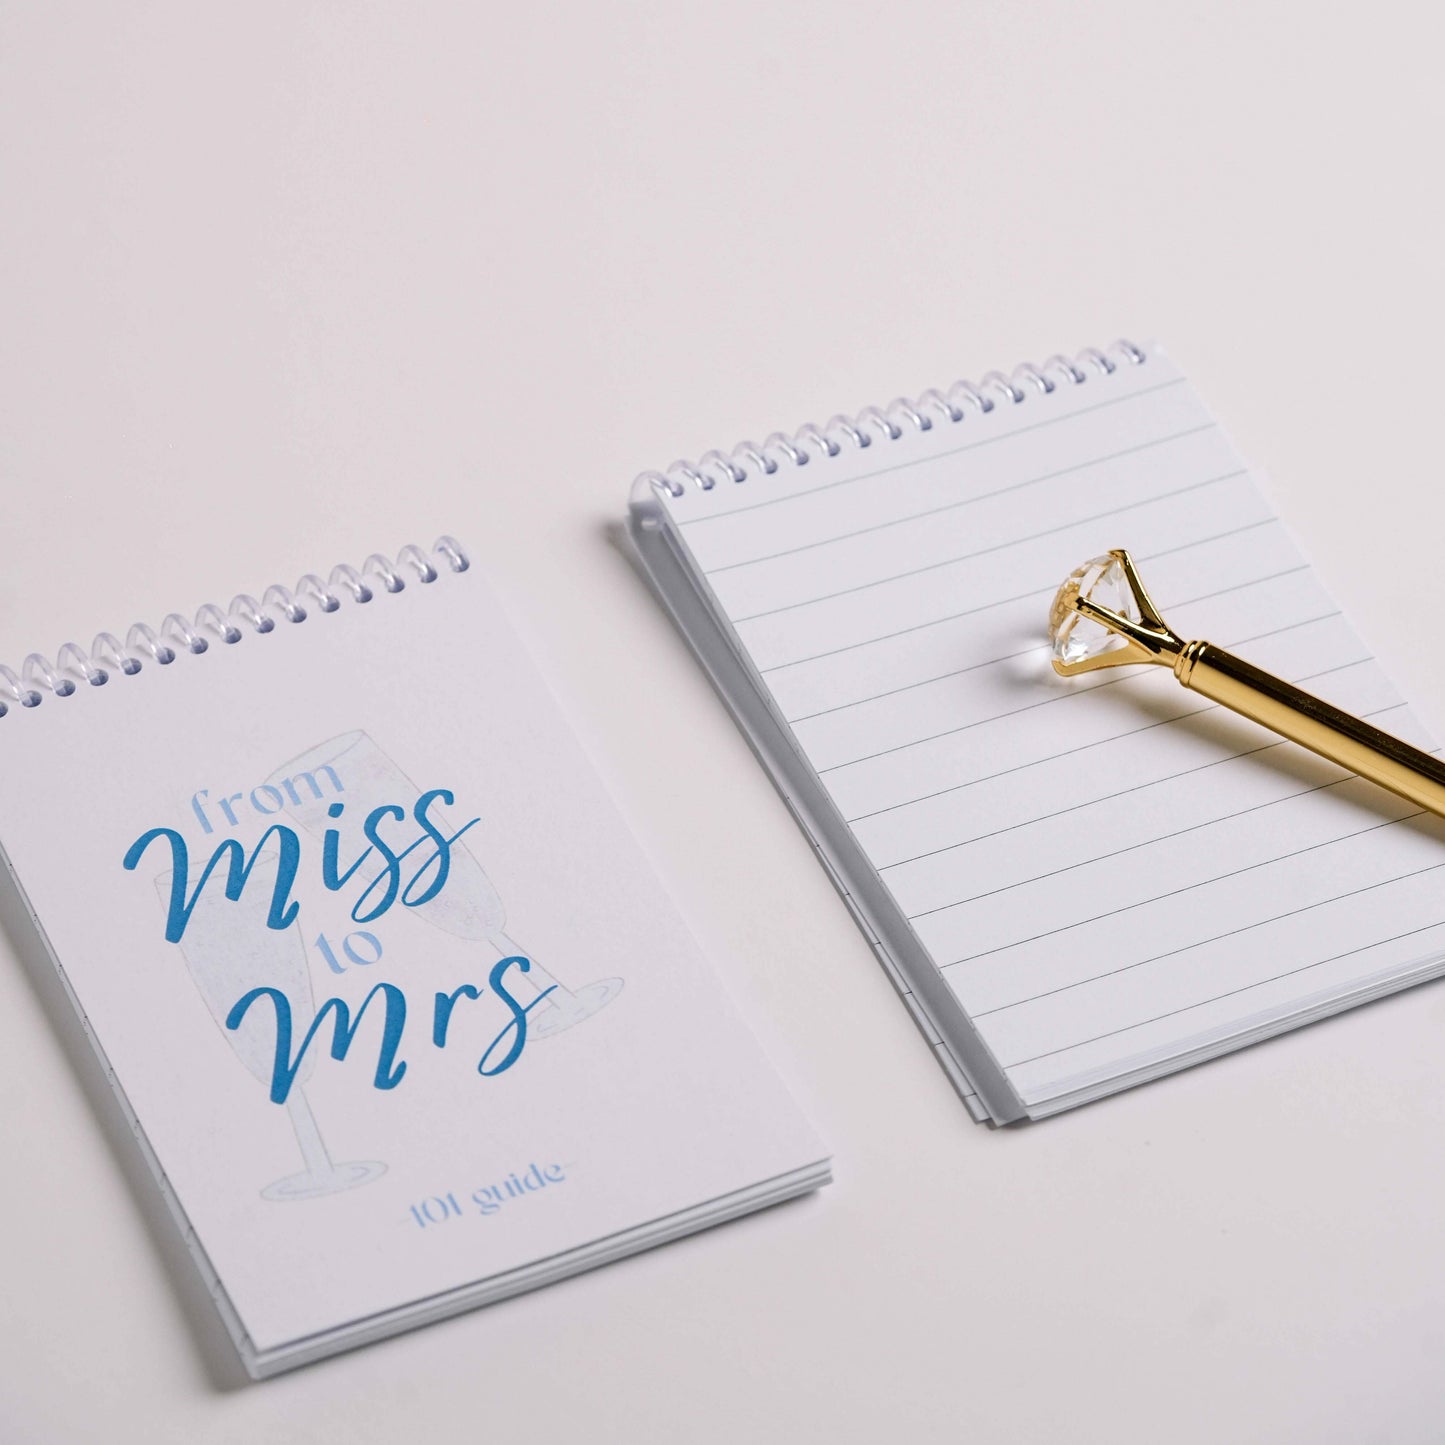 from
Miss
to
Mrs
-101 guide-